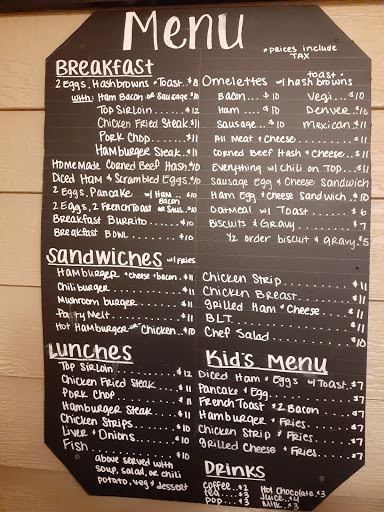 Menu
*prices include TAX
BREAKFAST
2 Eggs, Hashbrowns + Toast..$8
with: Ham Bacon or Sausage $10
Top Sirloin.......$12
Chicken Fried Steak.$11
Pork Chop.......$11
Hamburger Steak..$11
Homemade Corned Beef Hash.$10
Diced Ham & Scrambled Eggs.$10
2 Eggs, Pancake w/ Ham..$10
Bacon
2 Eggs, 2 French Toast or Saus..$10
Breakfast Burrito.......$10
Breakfast Bowl.......$10
Omelettes w/ toast + hash browns
Bacon....$10
Ham.....$10
Sausage...$10
Vegi...$10
Denver..$10
Mexican.$11
All Meat + Cheese.......$11
Corned Beef Hash + Cheese...$11
Everything w/ chili on Top...$11
Sausage Egg & Cheese Sandwich
Ham Egg & Cheese Sandwich..$10
Oatmeal w/ Toast.....$6
Biscuits & Gravy.....$7
1/2 order biscuit & gravy.$5
Sandwiches w/ Fries
Hamburger + cheese + bacon..$11
Chiliburger.......$11
Mushroom burger.....$11
Patty Melt.......$11
Hot Hamburger or Chicken..$10
Chicken Strip.......$11
Chicken Breast.......$11
Grilled Ham & Cheese.....$11
BLT.......$11
Chef Salad.......$10
Lunches
Top Sirloin.......$12
Chicken Fried Steak...$11
Pork Chop.......$11
Hamburger Steak....$11
Chicken Strips.....$10
Liver & Onions.....$10
Fish.......$10
above served with
soup, salad, or chili
potato, veg & dessert
Kid's Menu
Diced Ham & Eggs w/ Toast..$7
Pancake & Egg.......$7
French Toast + 2 Bacon..$7
Hamburger & Fries.....$7
Chicken Strip & Fries...$7
Grilled Cheese & Fries..$7
Drinks
Coffee..$2
Tea...$3
Pop...$3
Hot Chocolate.$3
Juice..$4
Milk..$3